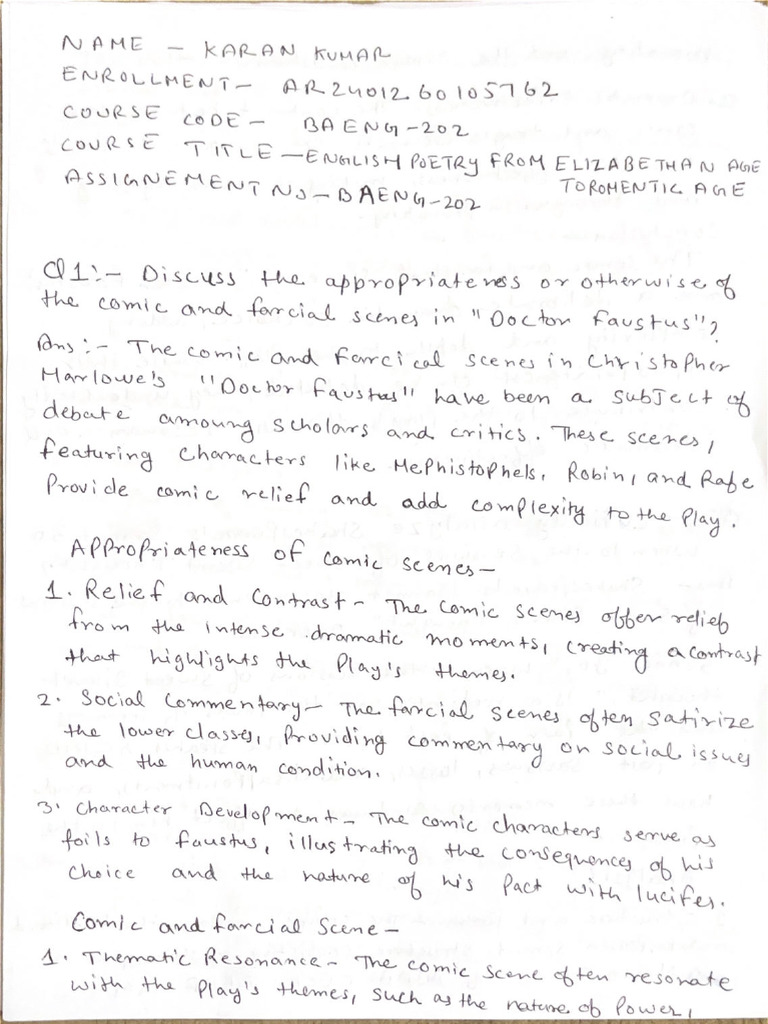 NAME - KARAN KUMAR
ENROLLMENT- AR2401260105762
COURSE CODE- BAENG-202
COURSE TITLE-ENGLISH POETRY FROM ELIZABETHAN AGE
TOROMENTIC AGE
ASSIGNEMENT NO-BAENG-202
Q1:- Discuss the appropriateness or otherwise of
the comic and farcial scenes in "Doctor Faustus"?
Ans:- The comic and farcical scenes in Christopher
Marlowe's "Doctor Faustus" have been a subject of
debate amoung scholars and critics. These scenes,
featuring characters like Mephistophels, Robin, and Rafe
Provide comic relief and add complexity to the Play.
Appropriateness of comic scenes-
1. Relief and Contrast- The comic scenes offer relief
from the intense dramatic moments, creating a contrast
that highlights the Play's themes.
2. Social Commentary- The farcial scenes often satirize
the lower classes, Providing commentary on social issues
and the human condition.
3. Character Development- The comic characters serve as
foils to faustus, illustrating the consequences of his
Choice and the nature of his Pact with lucifer.
Comic and farcial Scene-
1. Thematic Resonance- The comic scene often resonate
with the Play's themes, such as the nature of Power,